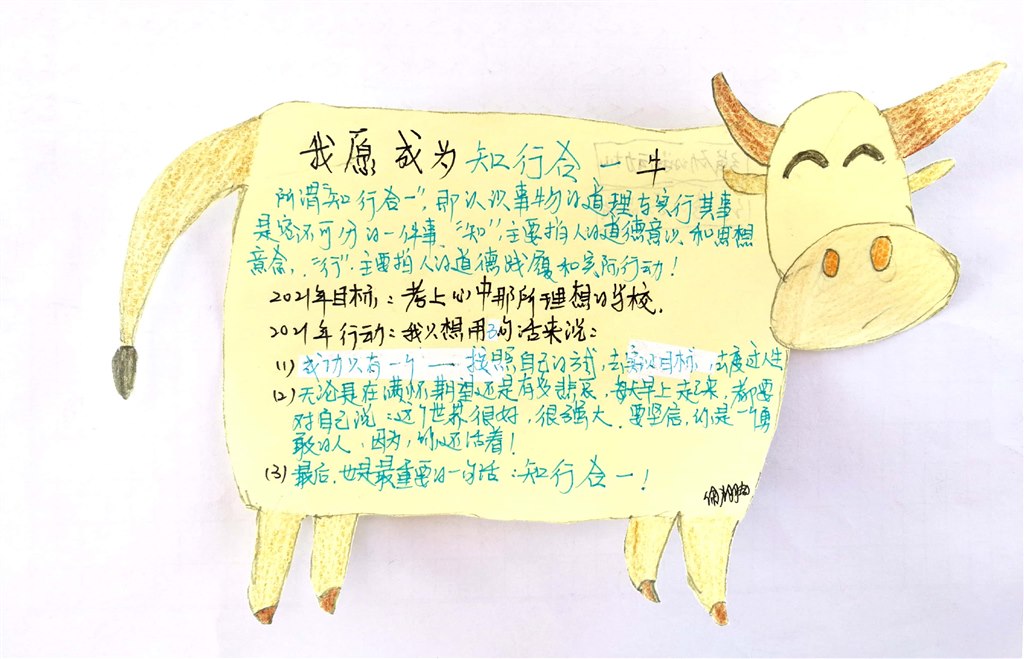 我愿成为知行合一牛
所谓"知行合一",那认识事物的道理与实行其事
是密不可分的一件事"知",主要指人的道德意识和思想
意念,"行"主要指人的道德践履和实际行动!
2021年目标:考上心中那所理想的学校.
2021年行动:我只想用3句话来说:
(1) 成功只有一个——按照自己的方式,去实现目标,去度过人生
(2) 无论是在满怀期望还是有多悲哀,每天早上起来,都要
对自己说:这个世界很好,很强大.要坚信,你是一个勇
敢的人,因为,你还活着!
(3) 最后,也是最重要的一句话:知行合一!